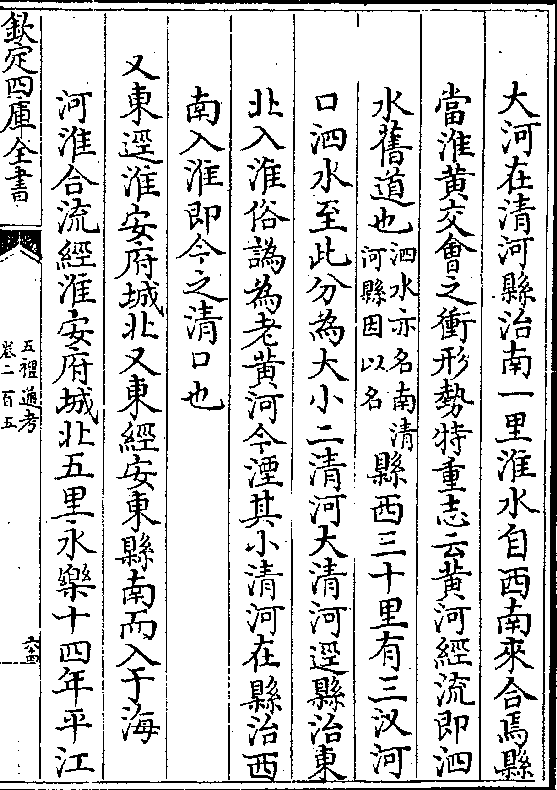 大河在清河縣治南一里淮水自西南來合焉縣
當淮黃交會之衝形勢特重志云黃河經流即泗
水舊道也泗水亦名南清河縣因以名縣西三十里有三汊河
口泗水至此分為大小二清河大清河逕縣治東
北入淮俗譌為老黃河今湮其小清河在縣治西
南入淮即今之清口也
又東逕淮安府城北又東經安東縣南而入于海
河淮合流經淮安府城北五里永樂十四年平江
欽定四庫全書
五禮通考
卷二百五
六十四